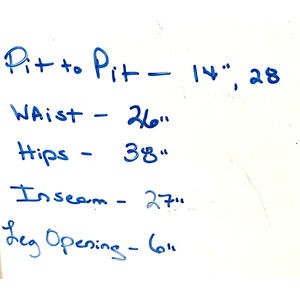 Pit to Pit - 14", 28
WAist - 26"
Hips - 38"
Inseam - 27"
Leg Opening - 6"